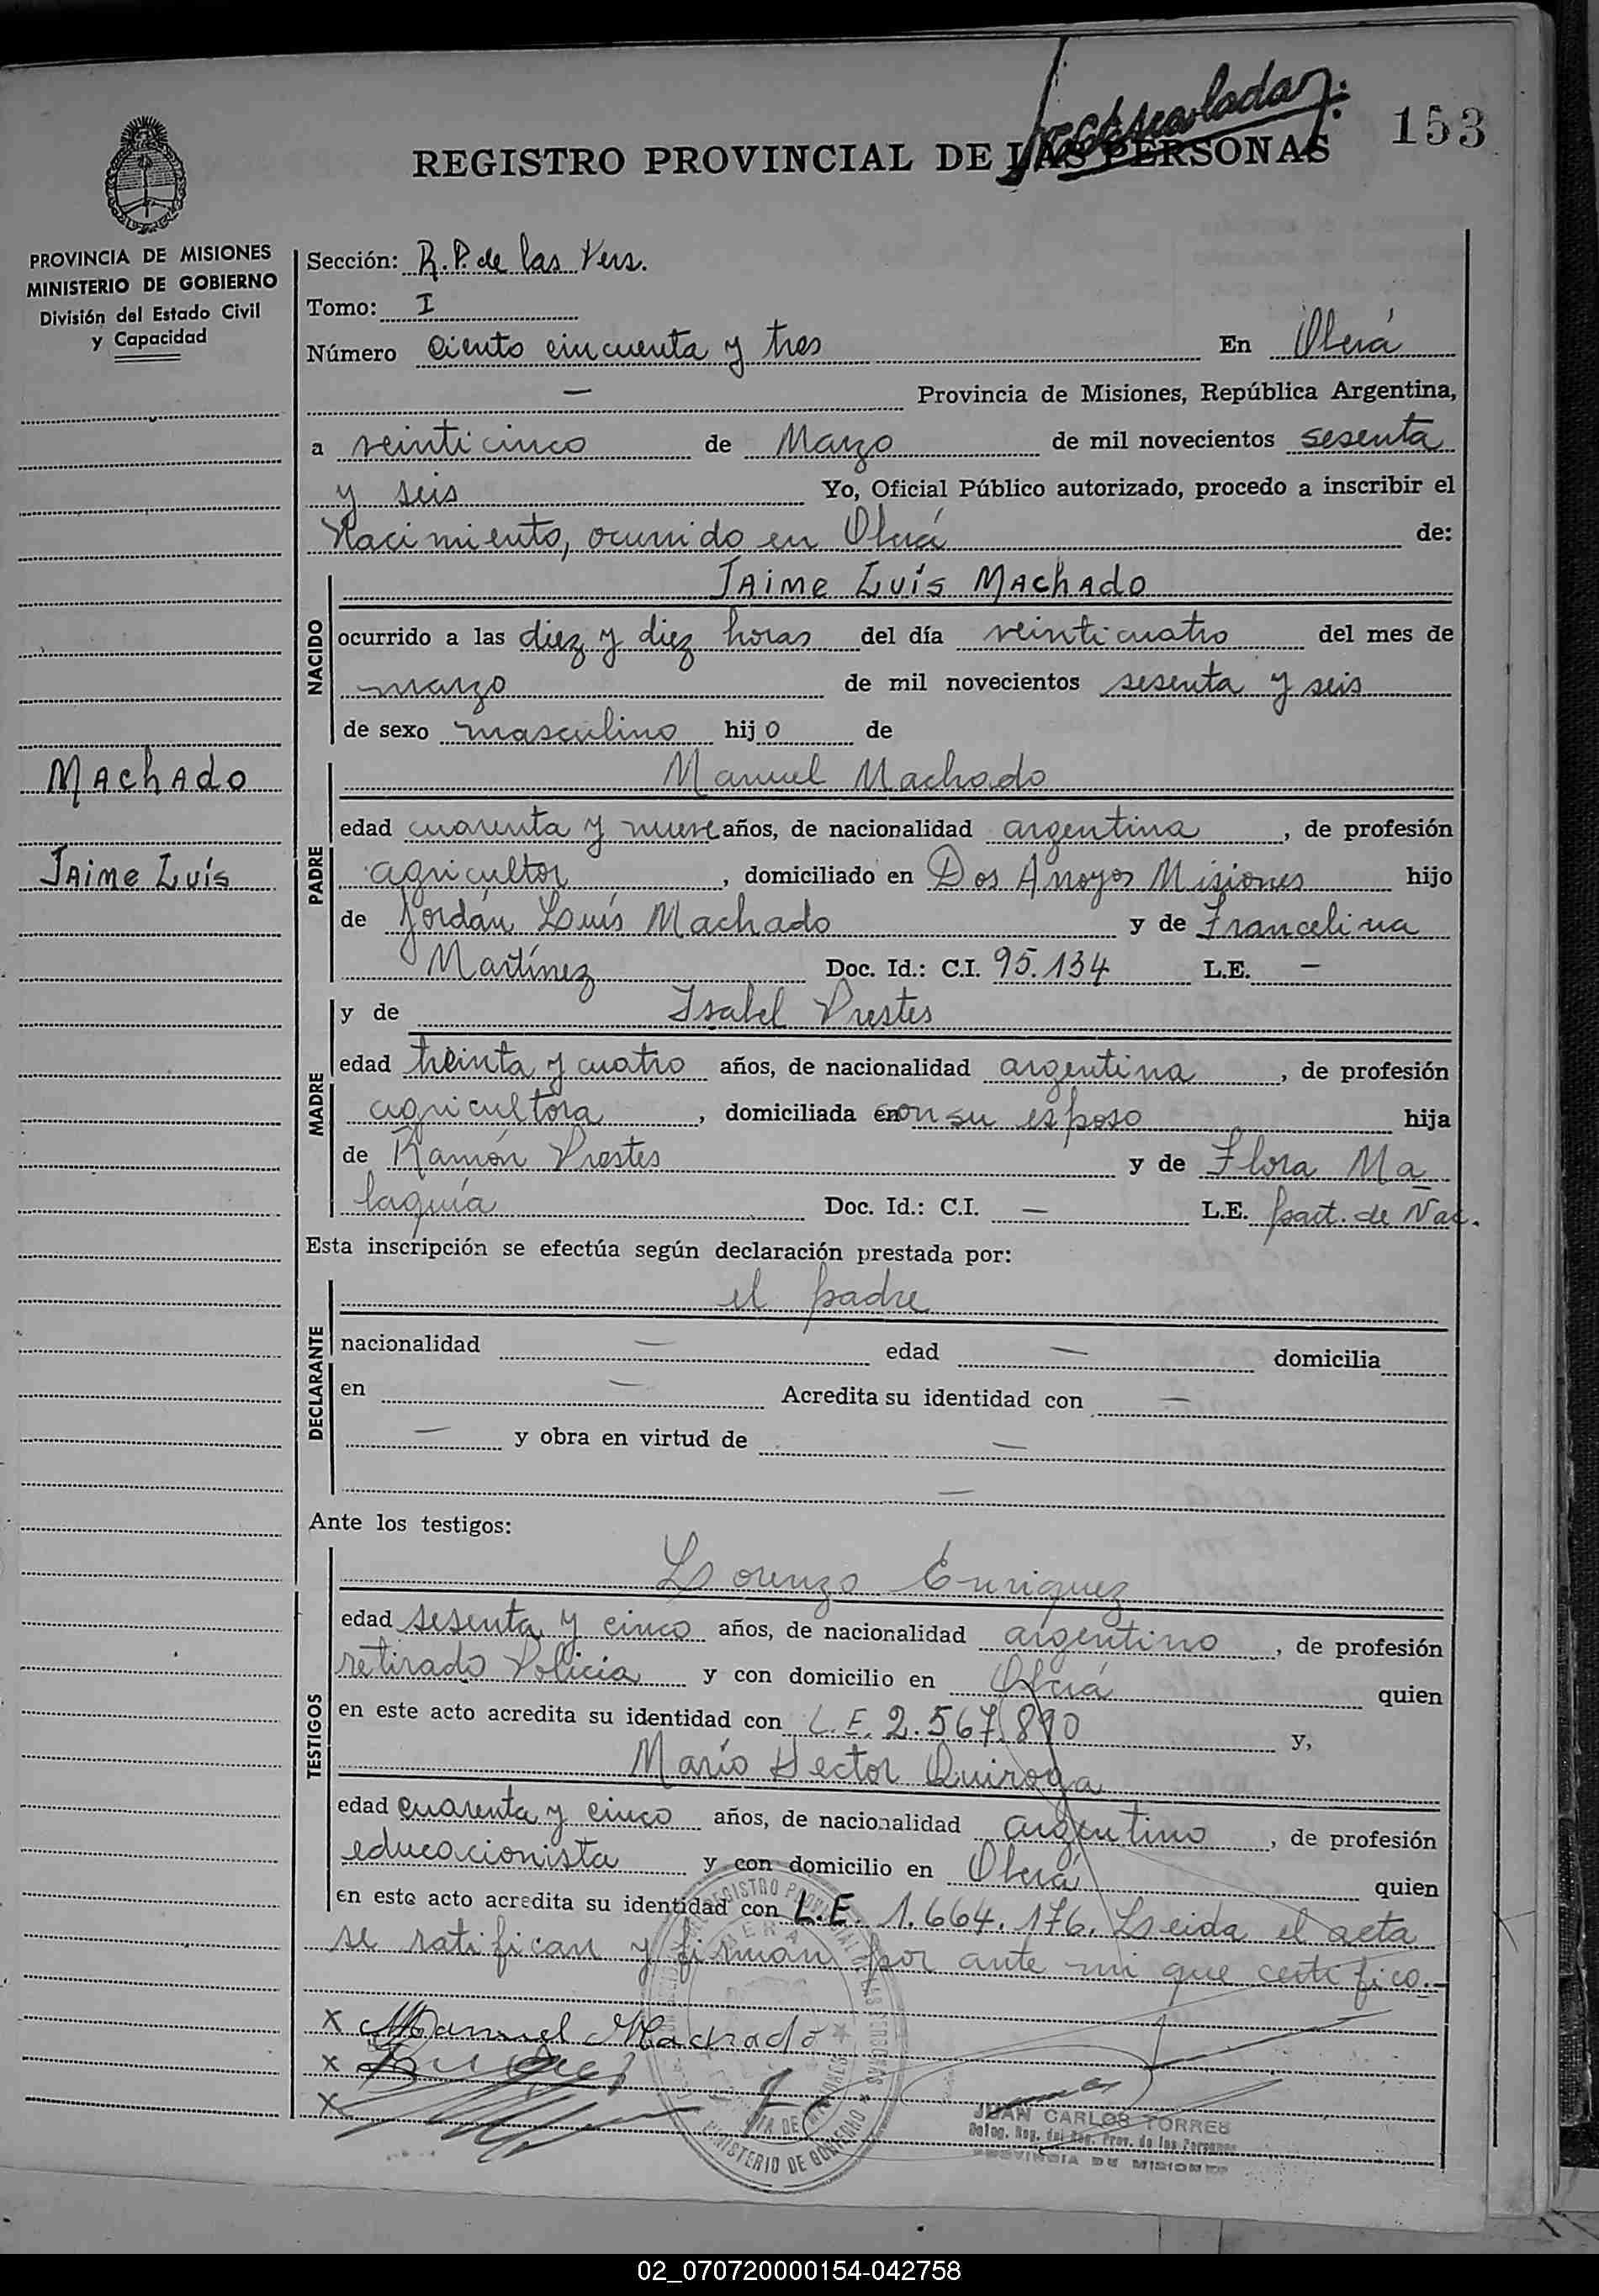 153
REGISTRO PROVINCIAL DE LAS PERSONAS
PROVINCIA DE MISIONES
MINISTERIO DE GOBIERNO
División del Estado Civil
y Capacidad
Machado
Jaime Luís
Sección: R.P. de las Pers.
Tomo: I
Número ciento cincuenta y tres En Oberá
— Provincia de Misiones, República Argentina,
a veinticinco de Marzo de mil novecientos sesenta
y seis Yo, Oficial Público autorizado, procedo a inscribir el
Nacimiento, ocurrido en Oberá de:
NACIDO
Jaime Luís Machado
ocurrido a las diez y diez horas del día veinticuatro del mes de
marzo de mil novecientos sesenta y seis
de sexo masculino hijo de
PADRE
Manuel Machado
edad cuarenta y nueve años, de nacionalidad argentina, de profesión
agricultor, domiciliado en Dos Arroyos Misiones hijo
de Jordán Luís Machado y de Francelina
Martínez Doc. Id.: C.I. 95.134 L.E. —
MADRE
y de Isabel Prestes
edad treinta y cuatro años, de nacionalidad argentina, de profesión
agricultora, domiciliada en con su esposo hija
de Ramón Prestes y de Flora Ma
laquía Doc. Id.: C.I. — L.E. part. de Nac.
Esta inscripción se efectúa según declaración prestada por:
DECLARANTE
el padre
nacionalidad — edad — domicilia
en — Acredita su identidad con —
— y obra en virtud de —
—
Ante los testigos:
TESTIGOS
Lorenzo Enriquez
edad sesenta y cinco años, de nacionalidad argentino, de profesión
retirado Policía y con domicilio en Oberá quien
en este acto acredita su identidad con L.E. 2.567.890 y,
Mario Hector Quiroga
edad cuarenta y cinco años, de nacionalidad argentino, de profesión
educacionista y con domicilio en Oberá quien
en este acto acredita su identidad con L.E. 1.664.176. Leida el acta
se ratifican y firman por ante mi que certifico.-
x Manuel Machado
x
x
JUAN CARLOS TORRES
Deleg. Reg. del Reg. Prov. de las Personas
PROVINCIA DE MISIONES
02_070720000154-042758